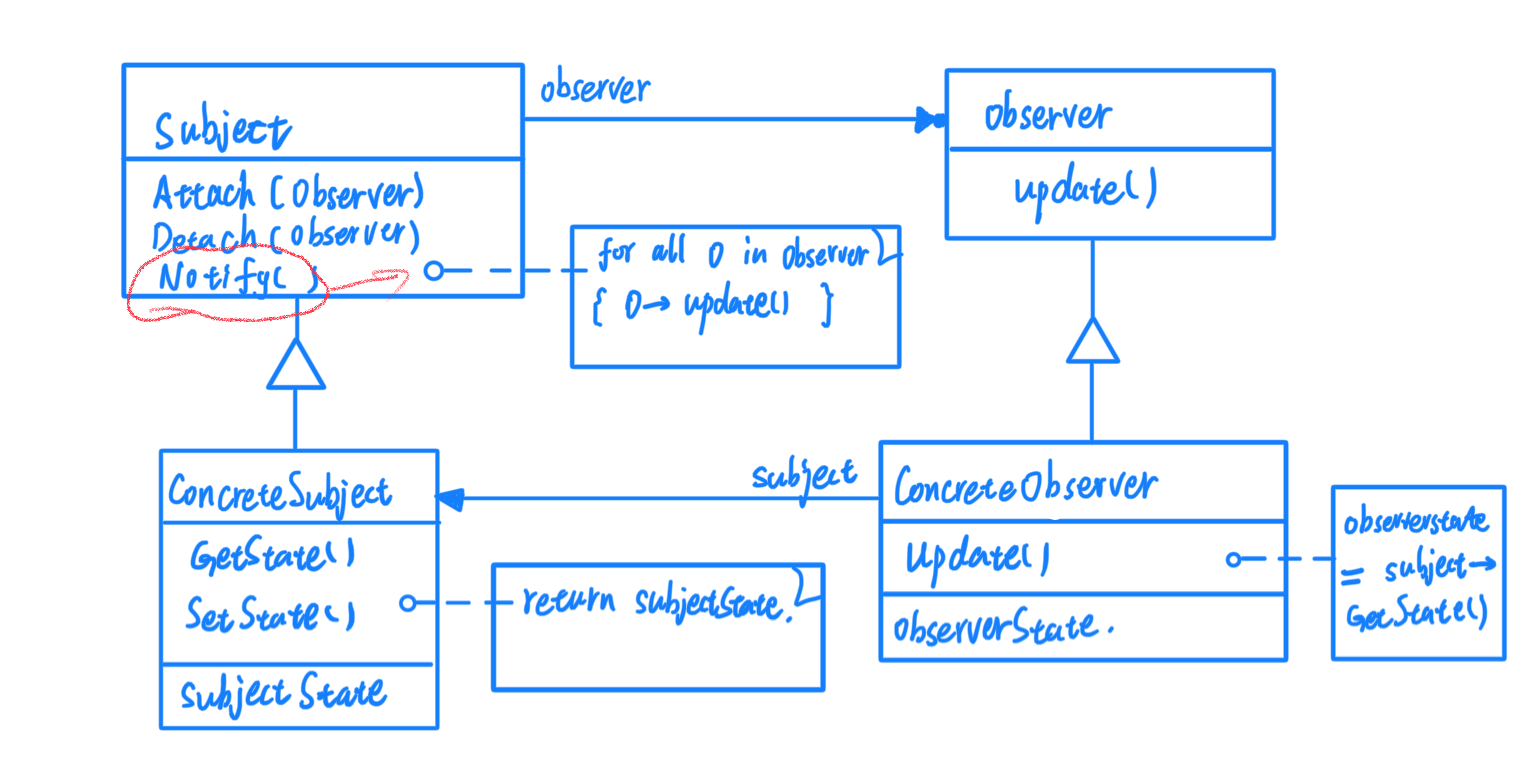 Subject
Attach (Observer)
Detach (Observer)
Notify( )
observer
Observer
update()
for all O in Observer
{ O→ update() }
ConcreteSubject
GetState()
SetState()
subject State
return subjectState.
subject
ConcreteObserver
Update()
observerState.
observerstate
= subject→
GetState()